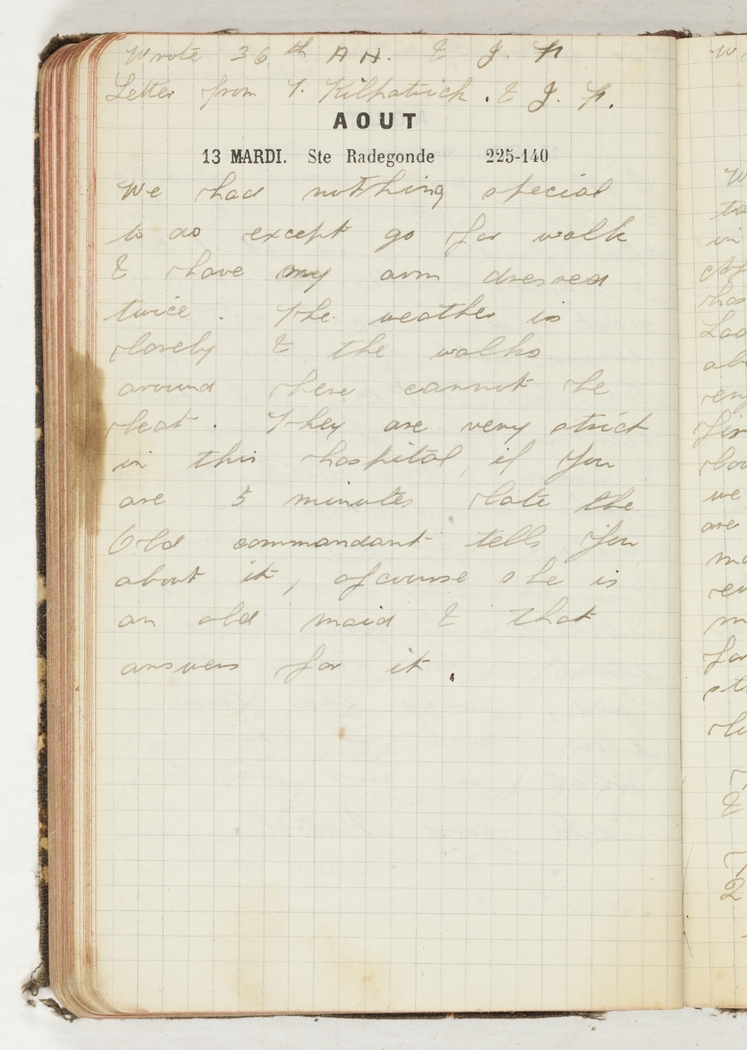 Wrote 36th A H. & J. H
Letter from T. Kilpatrick. & J. H.
AOUT
13 MARDI. Ste Radegonde 225-140
We had nothing special
to do except go for walk
& have my arm dressed
twice. The weather is
lovely & the walks
around here cannot be
beat. They are very strict
in this hospital, if you
are 5 minutes late the
Old commandant tells you
about it, ofcourse she is
an old maid & that
answers for it.